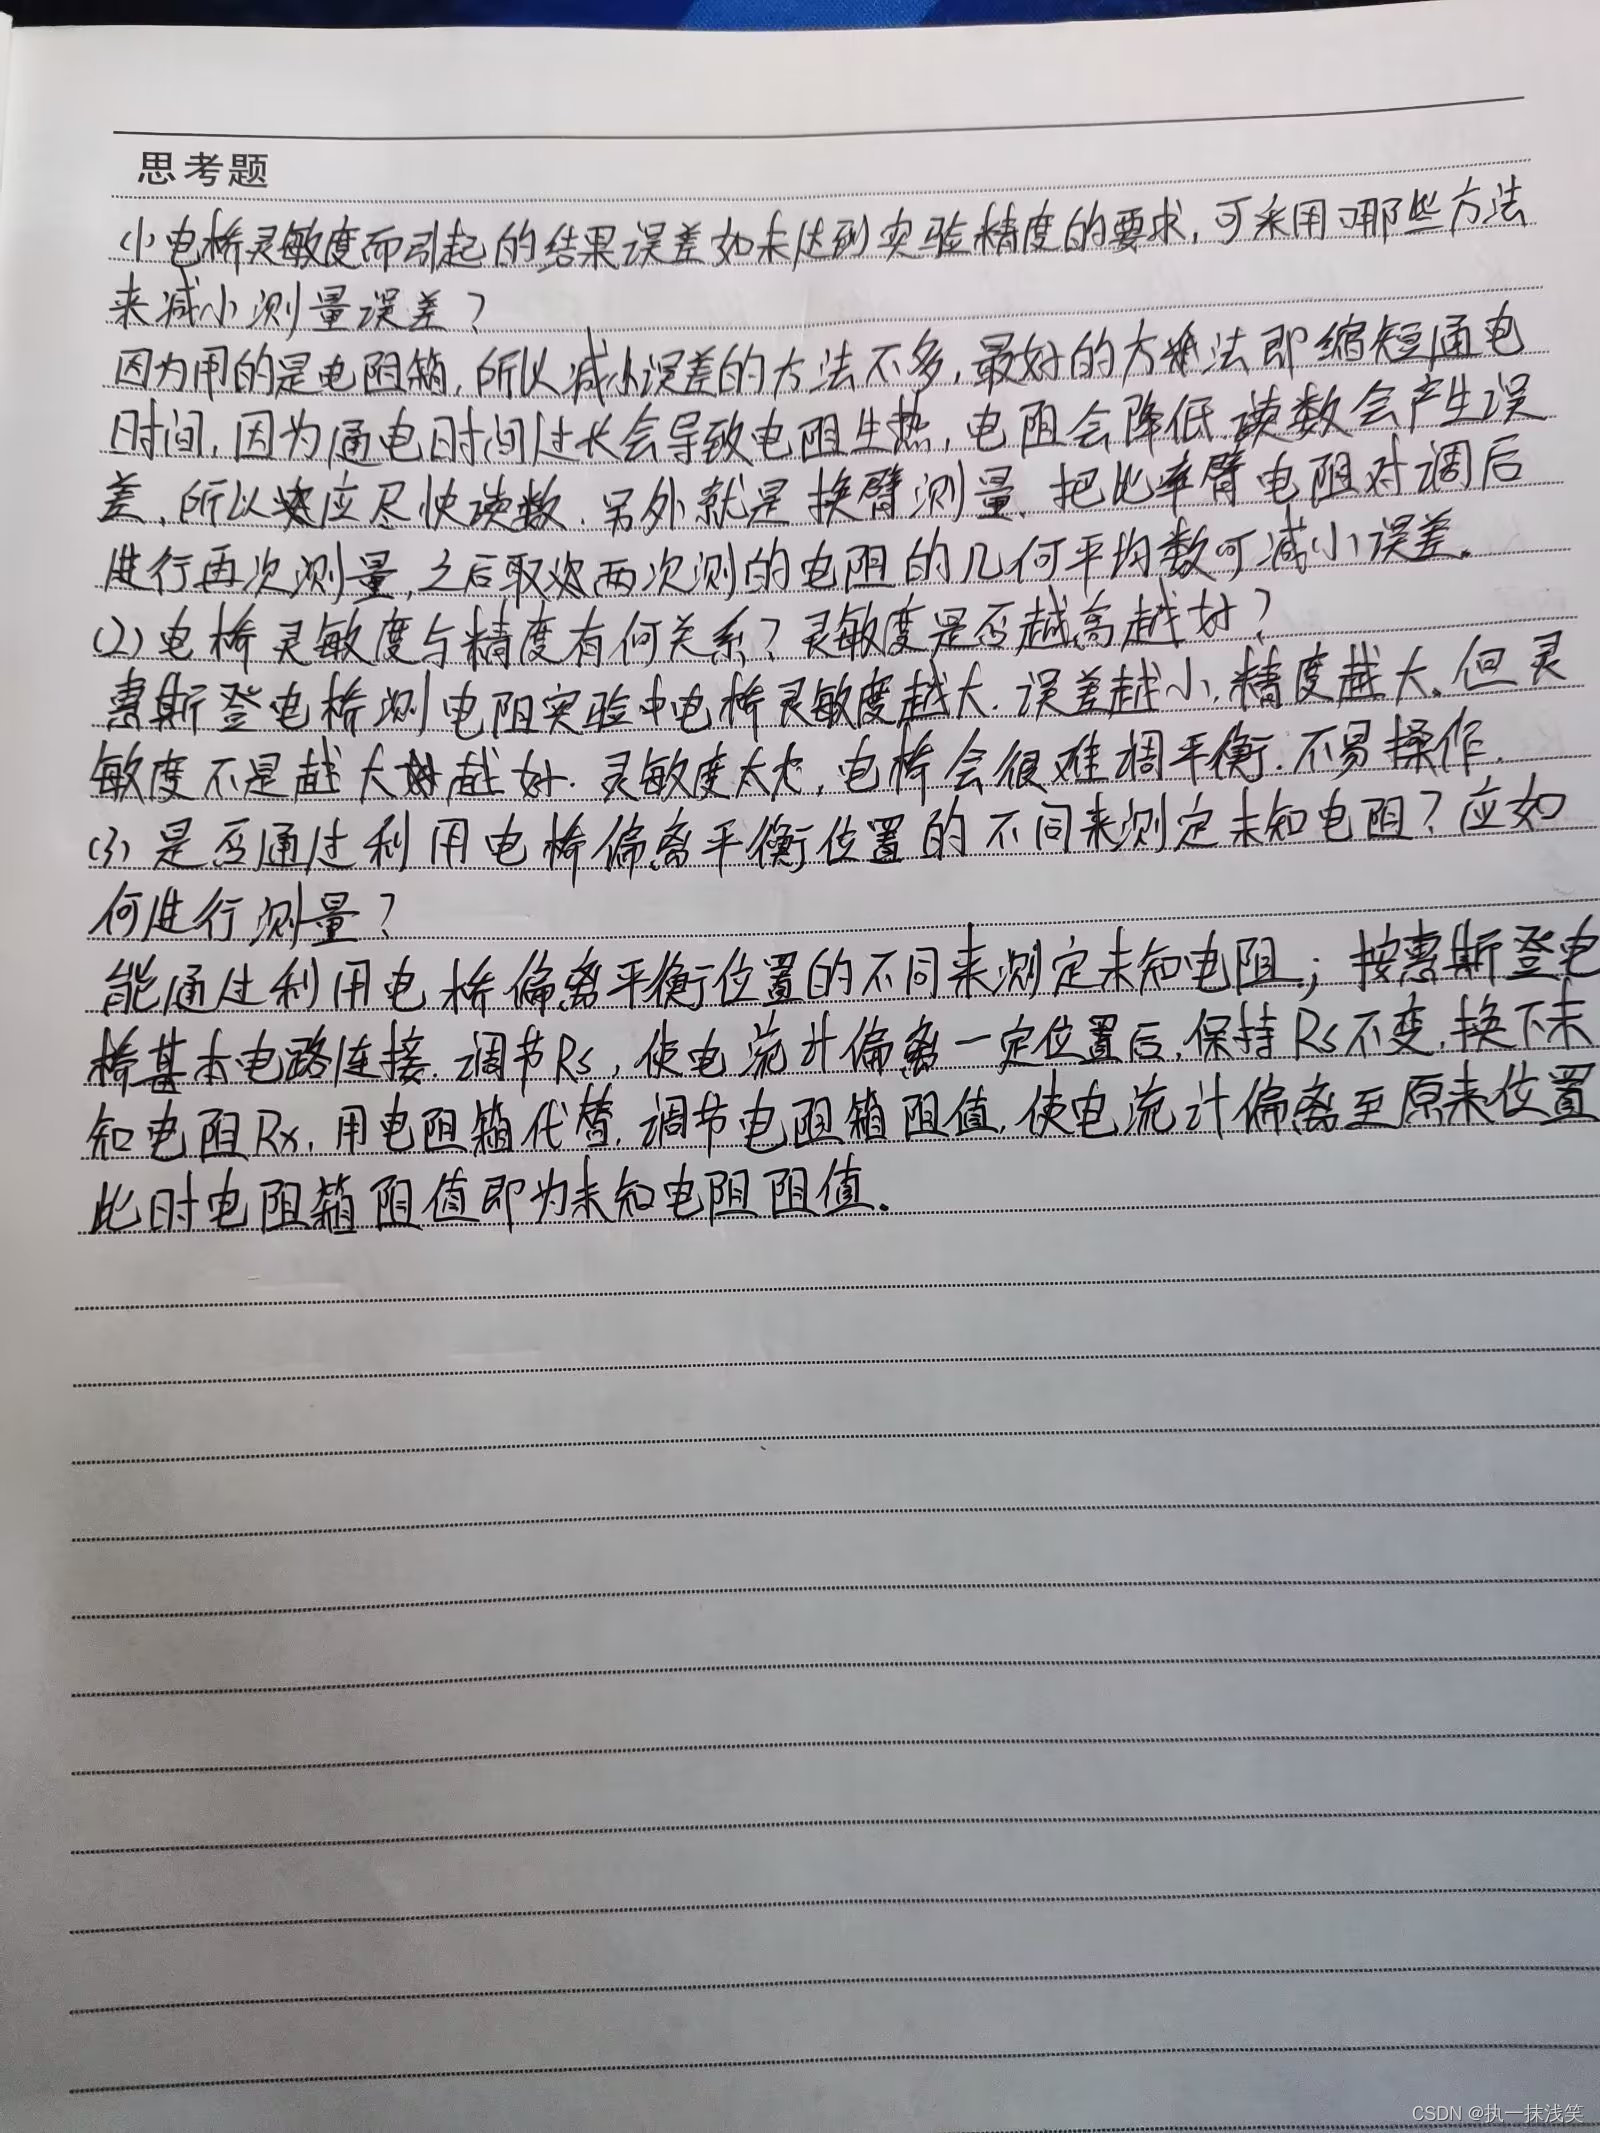 思考题
(1)电桥灵敏度而引起的结果误差如未达到实验精度的要求,可采用哪些方法
来减小测量误差?
因为用的是电阻箱,所以减小误差的方法不多,最好的方法即缩短通电
时间,因为通电时间过长会导致电阻生热,电阻会降低.读数会产生误
差,所以应尽快读数.另外就是换臂测量,把比率臂电阻对调后
进行再次测量,之后取两次测的电阻的几何平均数可减小误差。
(2)电桥灵敏度与精度有何关系?灵敏度是否越高越好?
惠斯登电桥测电阻实验中电桥灵敏度越大.误差越小,精度越大。但灵
敏度不是越大越好.灵敏度太大,电桥会很难调平衡.不易操作.
(3)是否通过利用电桥偏离平衡位置的不同来测定未知电阻?应如
何进行测量?
能通过利用电桥偏离平衡位置的不同来测定未知电阻.;按惠斯登电
桥基本电路连接.调节Rs,使电流计偏离一定位置后,保持Rs不变,换下未
知电阻Rx,用电阻箱代替.调节电阻箱阻值,使电流计偏离至原来位置
此时电阻箱阻值即为未知电阻阻值。
CSDN @执一抹浅笑